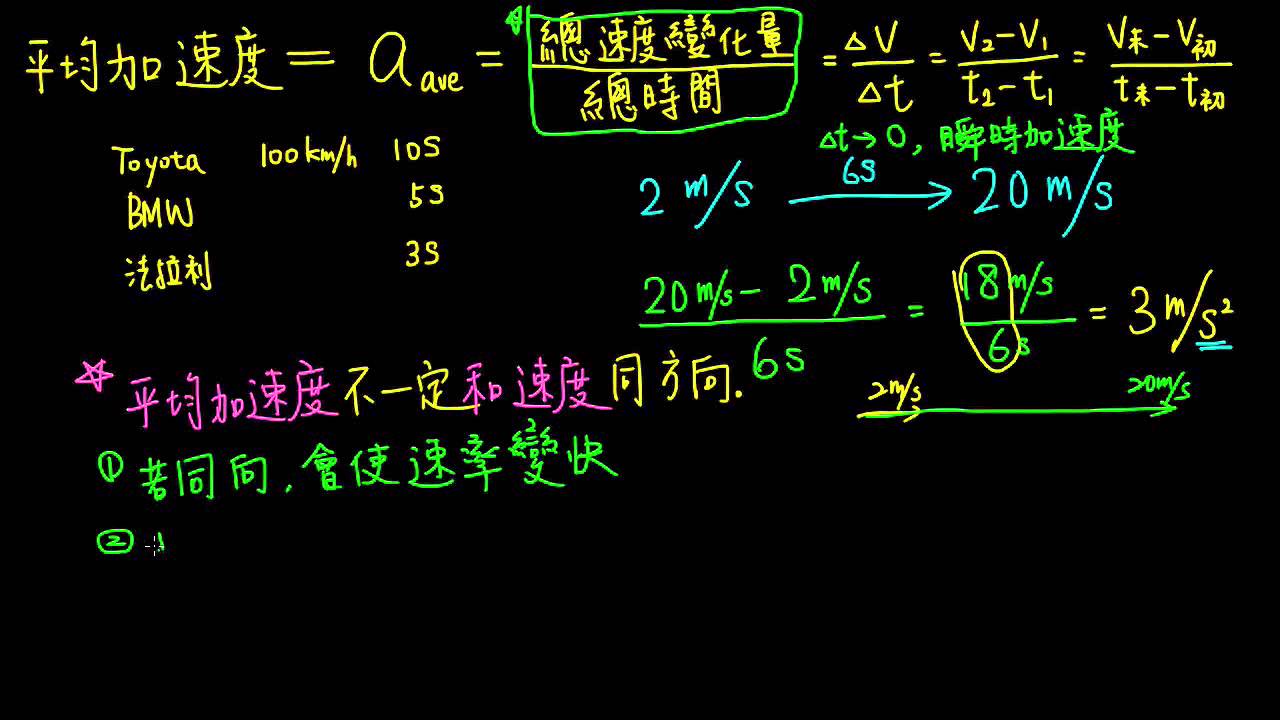 平均加速度 = a ave = 總速度變化量 / 總時間 = ΔV / Δt = V₂-V₁ / t₂-t₁ = V末-V初 / t末-t初
Δt→0, 瞬時加速度
Toyota 100km/h 10S
BMW 5S
法拉利 3S
2 m/s 6S → 20 m/s
20m/s - 2m/s / 6s = 18m/s / 6s = 3m/s²
2m/s 20m/s
☆ 平均加速度不一定和速度同方向.
① 若同向, 會使速率變快
②